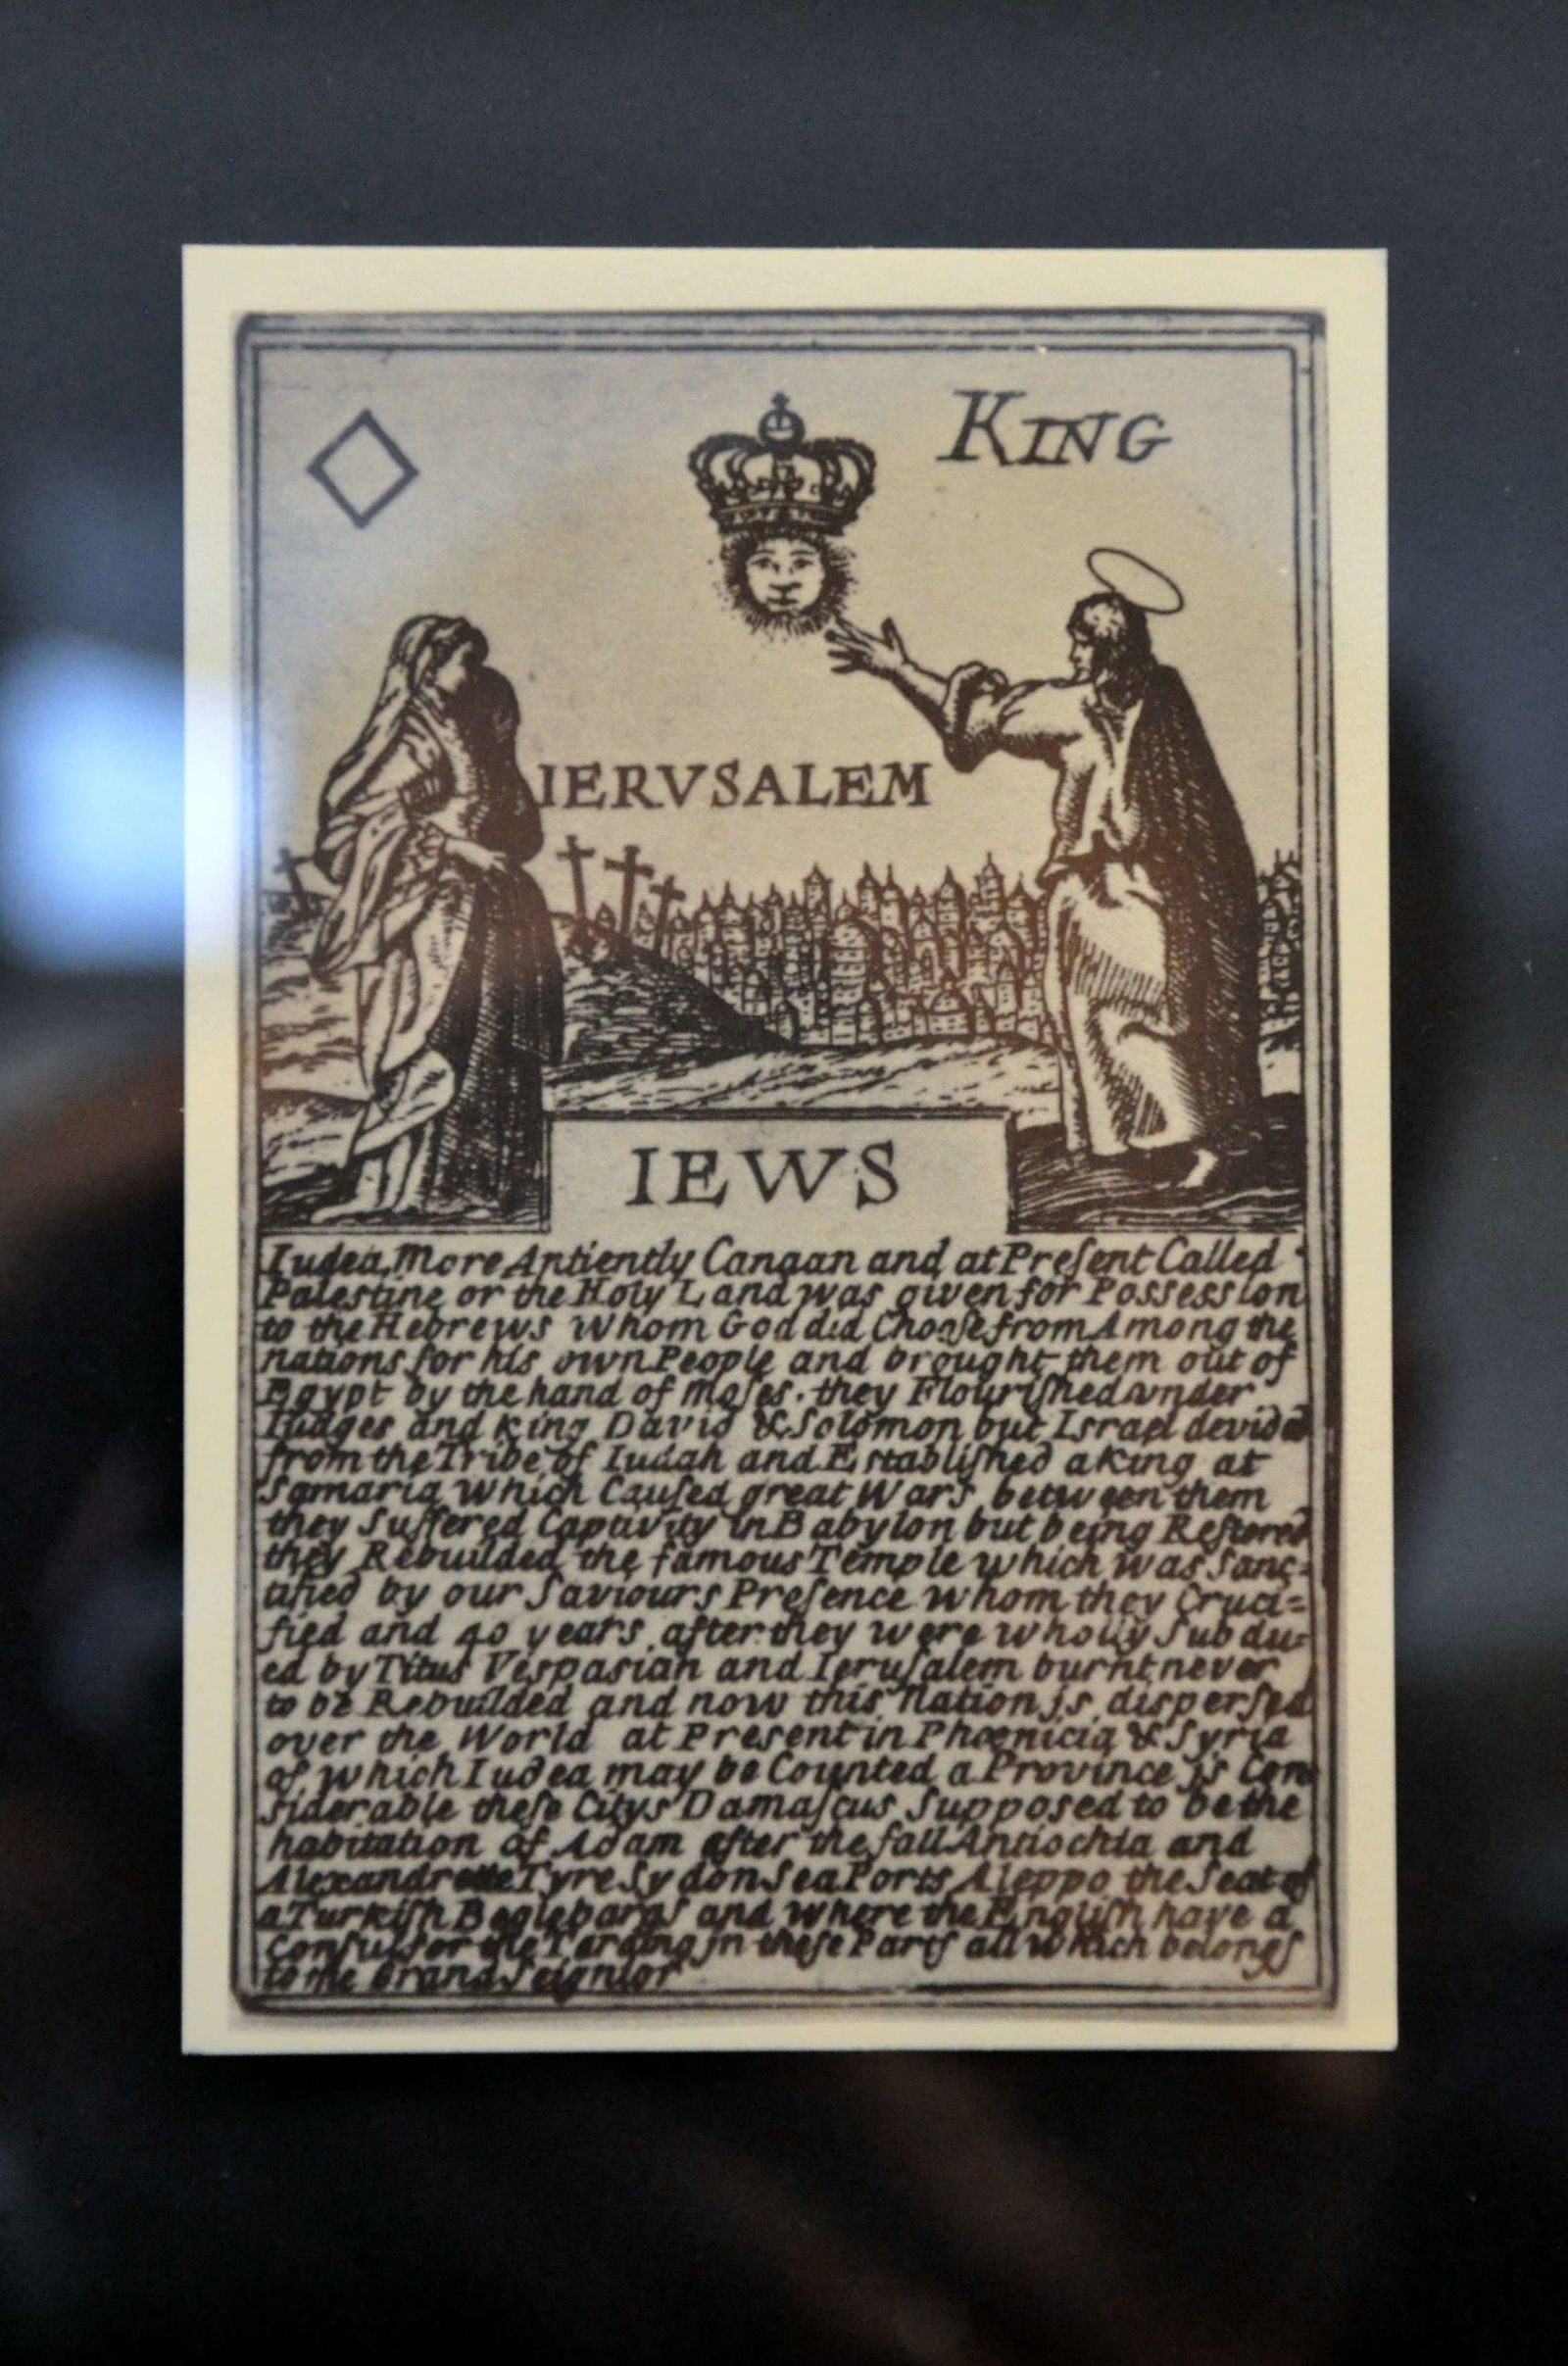 KING
IERVSALEM
IEWS
Iudea More Antiently Canaan and at Preſent Called
Palestine or the Holy Land was given for Possession
to the Hebrews whom God did Chooſe from Among the
nations for his own People and brought them out of
Egypt by the hand of Moſes. they Flouriſhed vnder
Iudges and King David & Solomon but Israel devided
from the Tribe of Iudah and Establiſhed a King at
Samaria which Cauſed great Wars between them
they Suffered Captivity in Babylon but being Reſtored
they Rebuilded the famous Temple which was Sanc=
tified by our Saviours Preſence whom they Cruci=
fied and 40 years after they were wholly Subdu=
ed by Titus Vespasian and Ieruſalem burnt never
to be Rebuilded and now this Nation is disperſed
over the World at Present in Phœnicia & Syria
of which Iudea may be Counted a Province is Con
siderable theſe Citys Damaſcus Supposed to be the
habitation of Adam after the fall Antiochia and
Alexandrette Tyre Sydon Sea Ports Aleppo the Seat of
a Turkiſh and where the Engliſh have a
Conſul for the in theſe Parts all which belongs
to the Grand Seignior